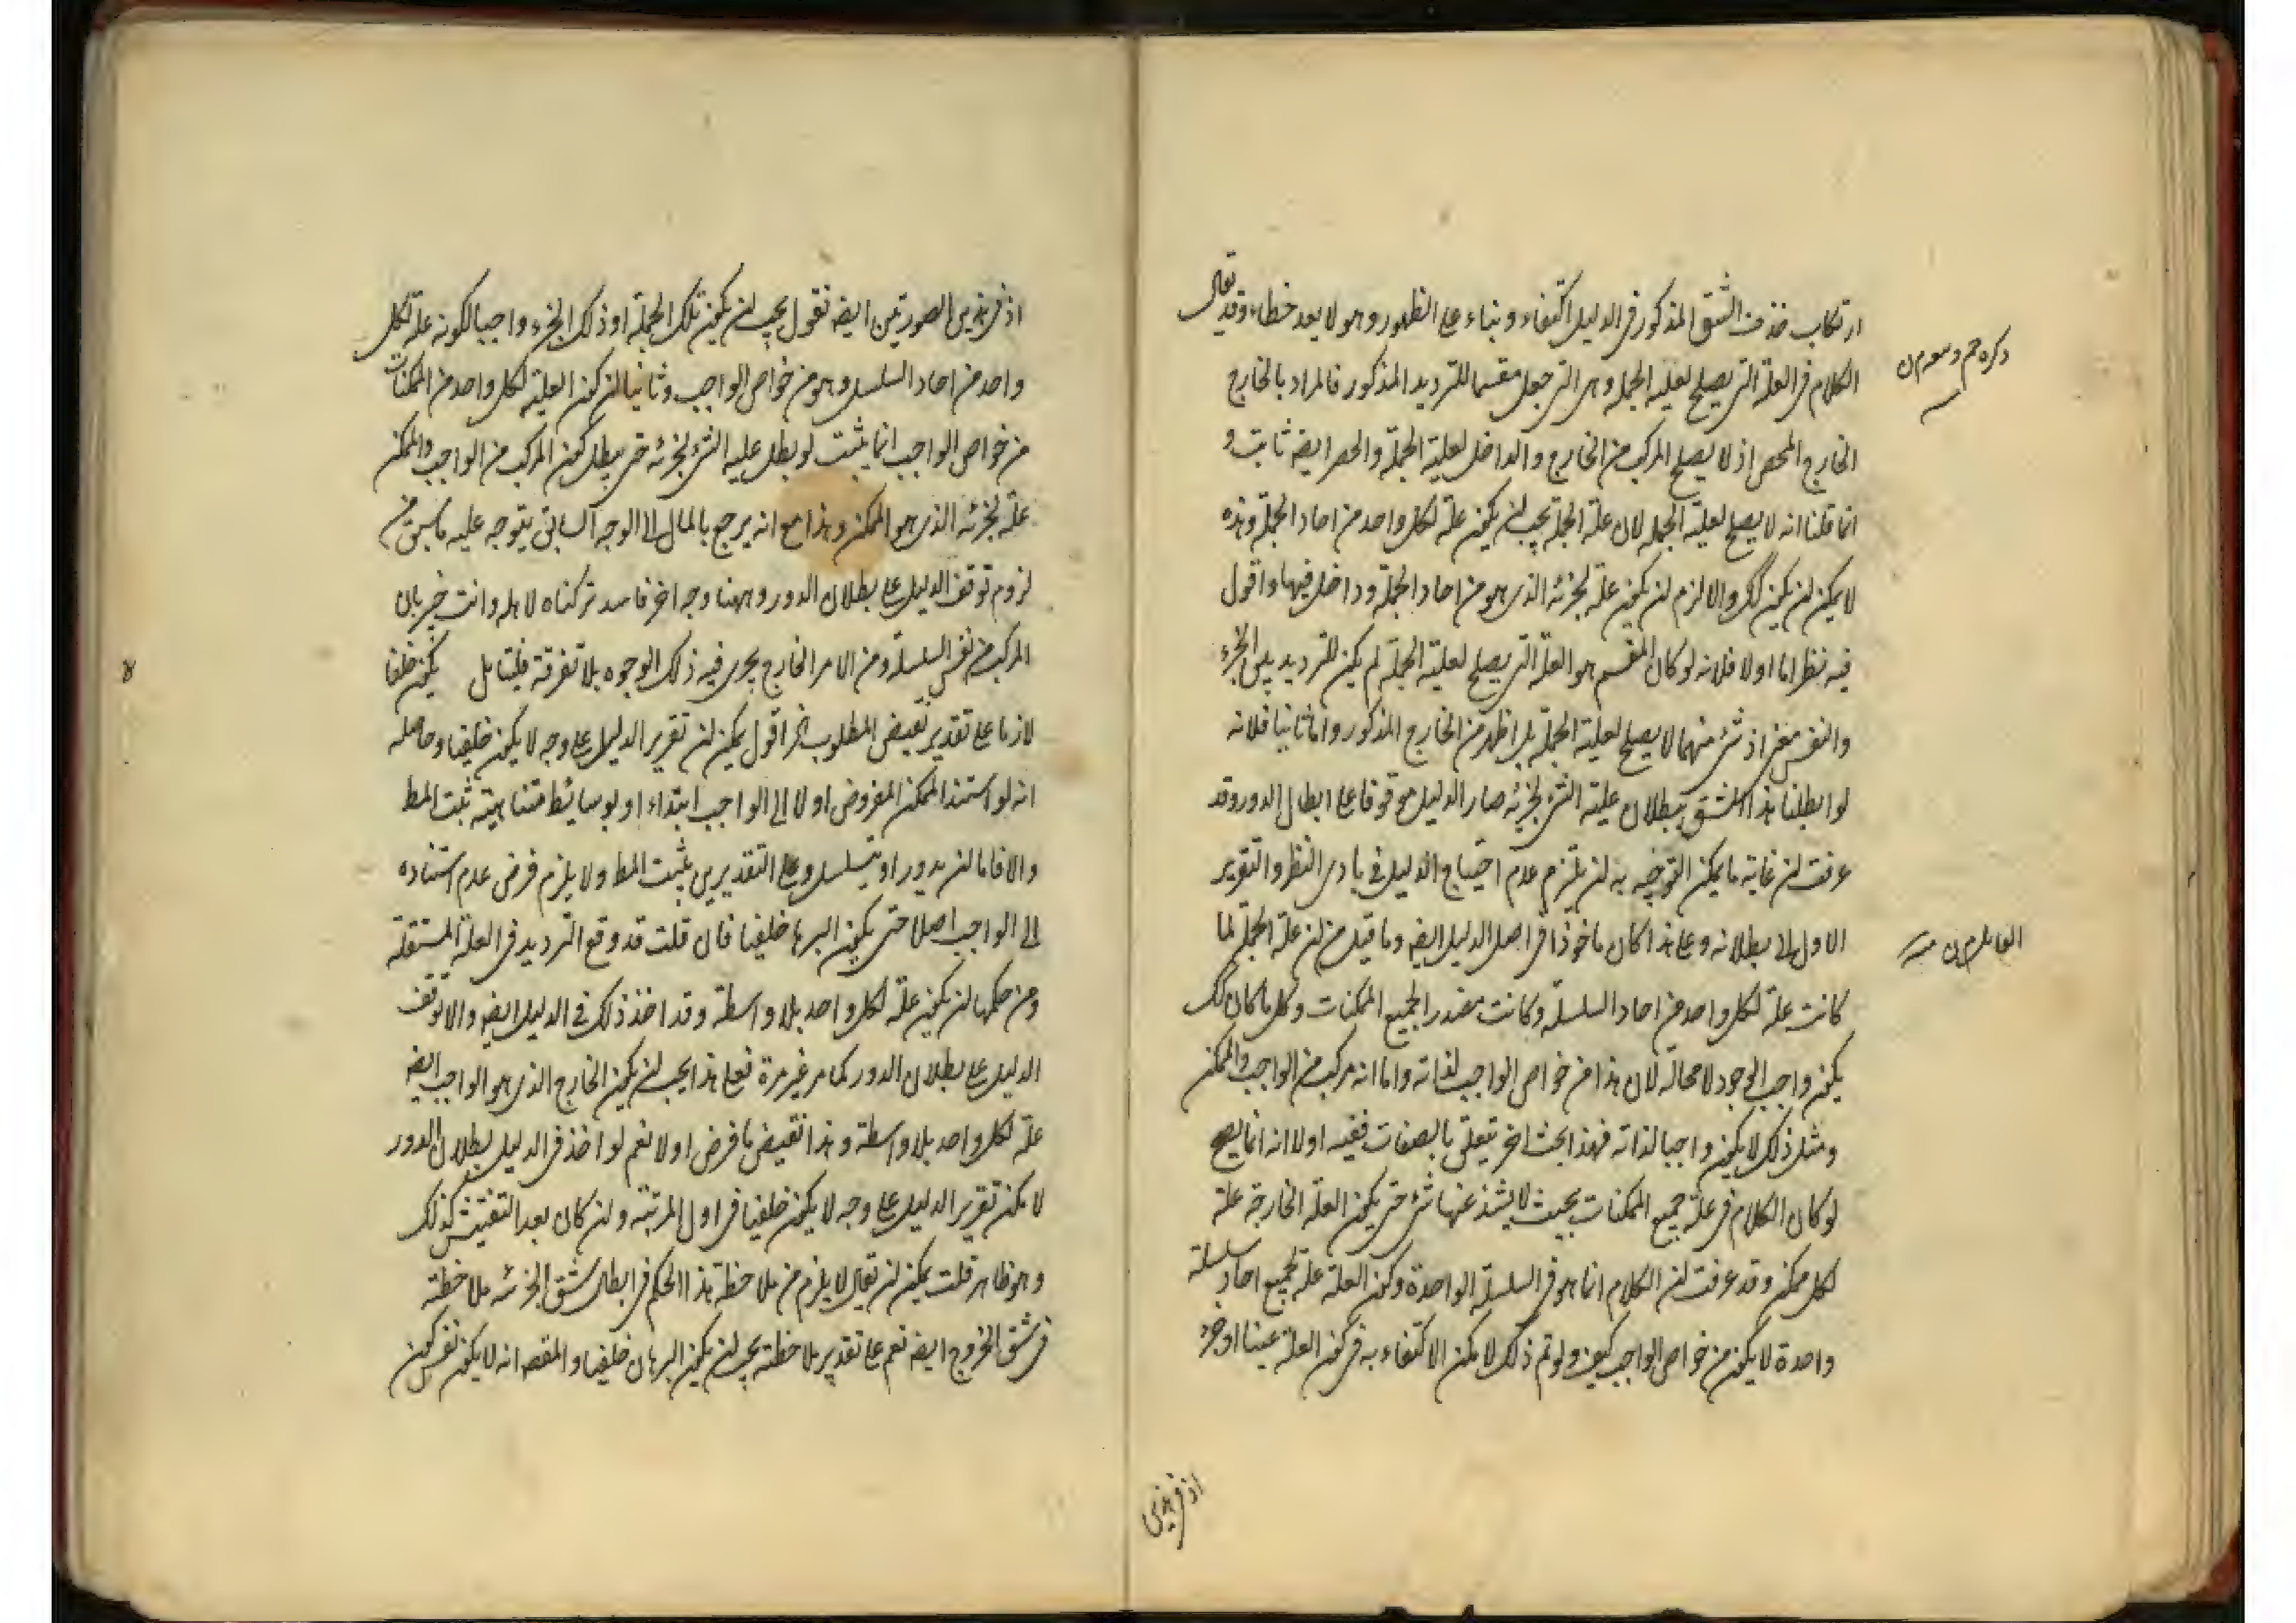 ارتكاب حذف الشق المذكور في الدليل اكتفاء وبناء على الظهور وهو لا يعد خطاء وقد يقال
الكلام في العلة التي يصلح لعلية الجملة وهي التي جعل مقسما للترديد المذكور فالمراد بالخارج
الخارج المحض اذ لا يصلح المركب من الخارج والداخل لعلية الجملة والحصر ايضه ثابت و
انما قلنا انه لا يصلح لعلية الجملة لان علة الجملة يجب ان يكون علة لكل واحد من احاد الجملة وهذه
لا يمكن ان يكون كك والا لزم ان يكون علة لجزئه الذي هو من احاد الجملة وداخل فيها واقول
فيه نظر اما اولا فلانه لو كان المقسم هو العلة التي يصلح لعلية الجملة لم يكن للترديد بين الجزء
والنفس معنى اذ شئ منهما لا يصلح لعلية الجملة بل اظهر من الخارج المذكور واما ثانيا فلانه
لو ابطلنا هذا الشق ببطلان علية الشئ لجزئه صار الدليل موقوفا على ابطال الدور وقد
عرفت ان غاية ما يمكن التوجيه به ان يلتزم عدم احتياج الدليل في بادى النظر والتقرير
الاول الى بطلانه وعلى هذا كان ماخوذا في اصل الدليل ايضه وما قيل من ان علة الجملة لما
كانت علة لكل واحد من احاد السلسلة وكانت مصدرا لجميع الممكنات وكل ما كان كك
يكون واجب الوجود لا محالة لان هذا من خواص الواجب لذاته واما انه مركب من الواجب والممكن
ومثل ذلك لا يكون واجبا لذاته فهذا بحث اخر يتعلق بالصفات ففيه اولا انه انما يصح
لو كان الكلام في علة جميع الممكنات بحيث لا يشذ عنها شئ حتى يكون العلة الخارجة علة
لكل ممكن وقد عرفت ان الكلام انما هو في السلسلة الواحدة وكون العلة علة لجميع احاد سلسلة
واحدة لا يكون من خواص الواجب كيف ولو تم ذلك لا يمكن الاكتفاء به في كون العلة عينا او جزء
اذ في هذين
اذ في هذين الصورتين ايضه نقول يجب ان يكون تلك الجملة او ذلك الجزء واجبا لكونه علة لكل
واحد من احاد السلسلة وهو من خواص الواجب وثانيا ان كون العلية لكل واحد من الممكنات
من خواص الواجب انما يثبت لو بطل علية الشئ لجزئه حتى يبطل كون المركب من الواجب والممكن
علة لجزئه الذي هو الممكن وهذا مع انه يرجع بالمال الى الوجه السابق يتوجه عليه ما سبق من
لزوم توقف الدليل على بطلان الدور وههنا وجه اخر فاسد تركناه لاهله وانت خبير بان
المركب من نفس السلسلة ومن الامر الخارج يجرى فيه ذلك الوجوه بلا تفرقة فليتامل يكون خلفا
لازما على تقدير نقيض المطلوب الخ اقول يمكن ان تقرير الدليل على وجه لا يكون خلفيا وحاصله
انه لو استند الممكن المفروض اولا الى الواجب ابتداء او بوسائط متناهية ثبت المط
والا فاما ان يدور او يتسلسل وعلى التقديرين يثبت المط ولا يلزم فرض عدم استناده
الى الواجب اصلا حتى يكون البرها خلفيا فان قلت قد وقع الترديد في العلة المستقلة
ومن حكمها ان يكون علة لكل واحد بلا واسطة وقد اخذ ذلك في الدليل ايضه والا توقف
الدليل على بطلان الدور كما مر غير مرة فعلى هذا يجب ان يكون الخارج الذي هو الواجب ايضه
علة لكل واحد بلا واسطة وهذا نقيض ما فرض اولا نعم لو اخذ في الدليل بطلان الدور
لا يمكن تقرير الدليل على وجه لا يكون خلفيا في اول المرتبة وان كان بعد التفتيش كذلك
وهو ظاهر قلت يمكن ان يقال لا يلزم من ملاحظة هذا الحكم في ابطال شق الجزئية ملاحظة
في شق الخروج ايضه نعم على تقدير ملاحظته يجب ان يكون البرهان خلفيا والمقصه انه لا يكون نفس كون